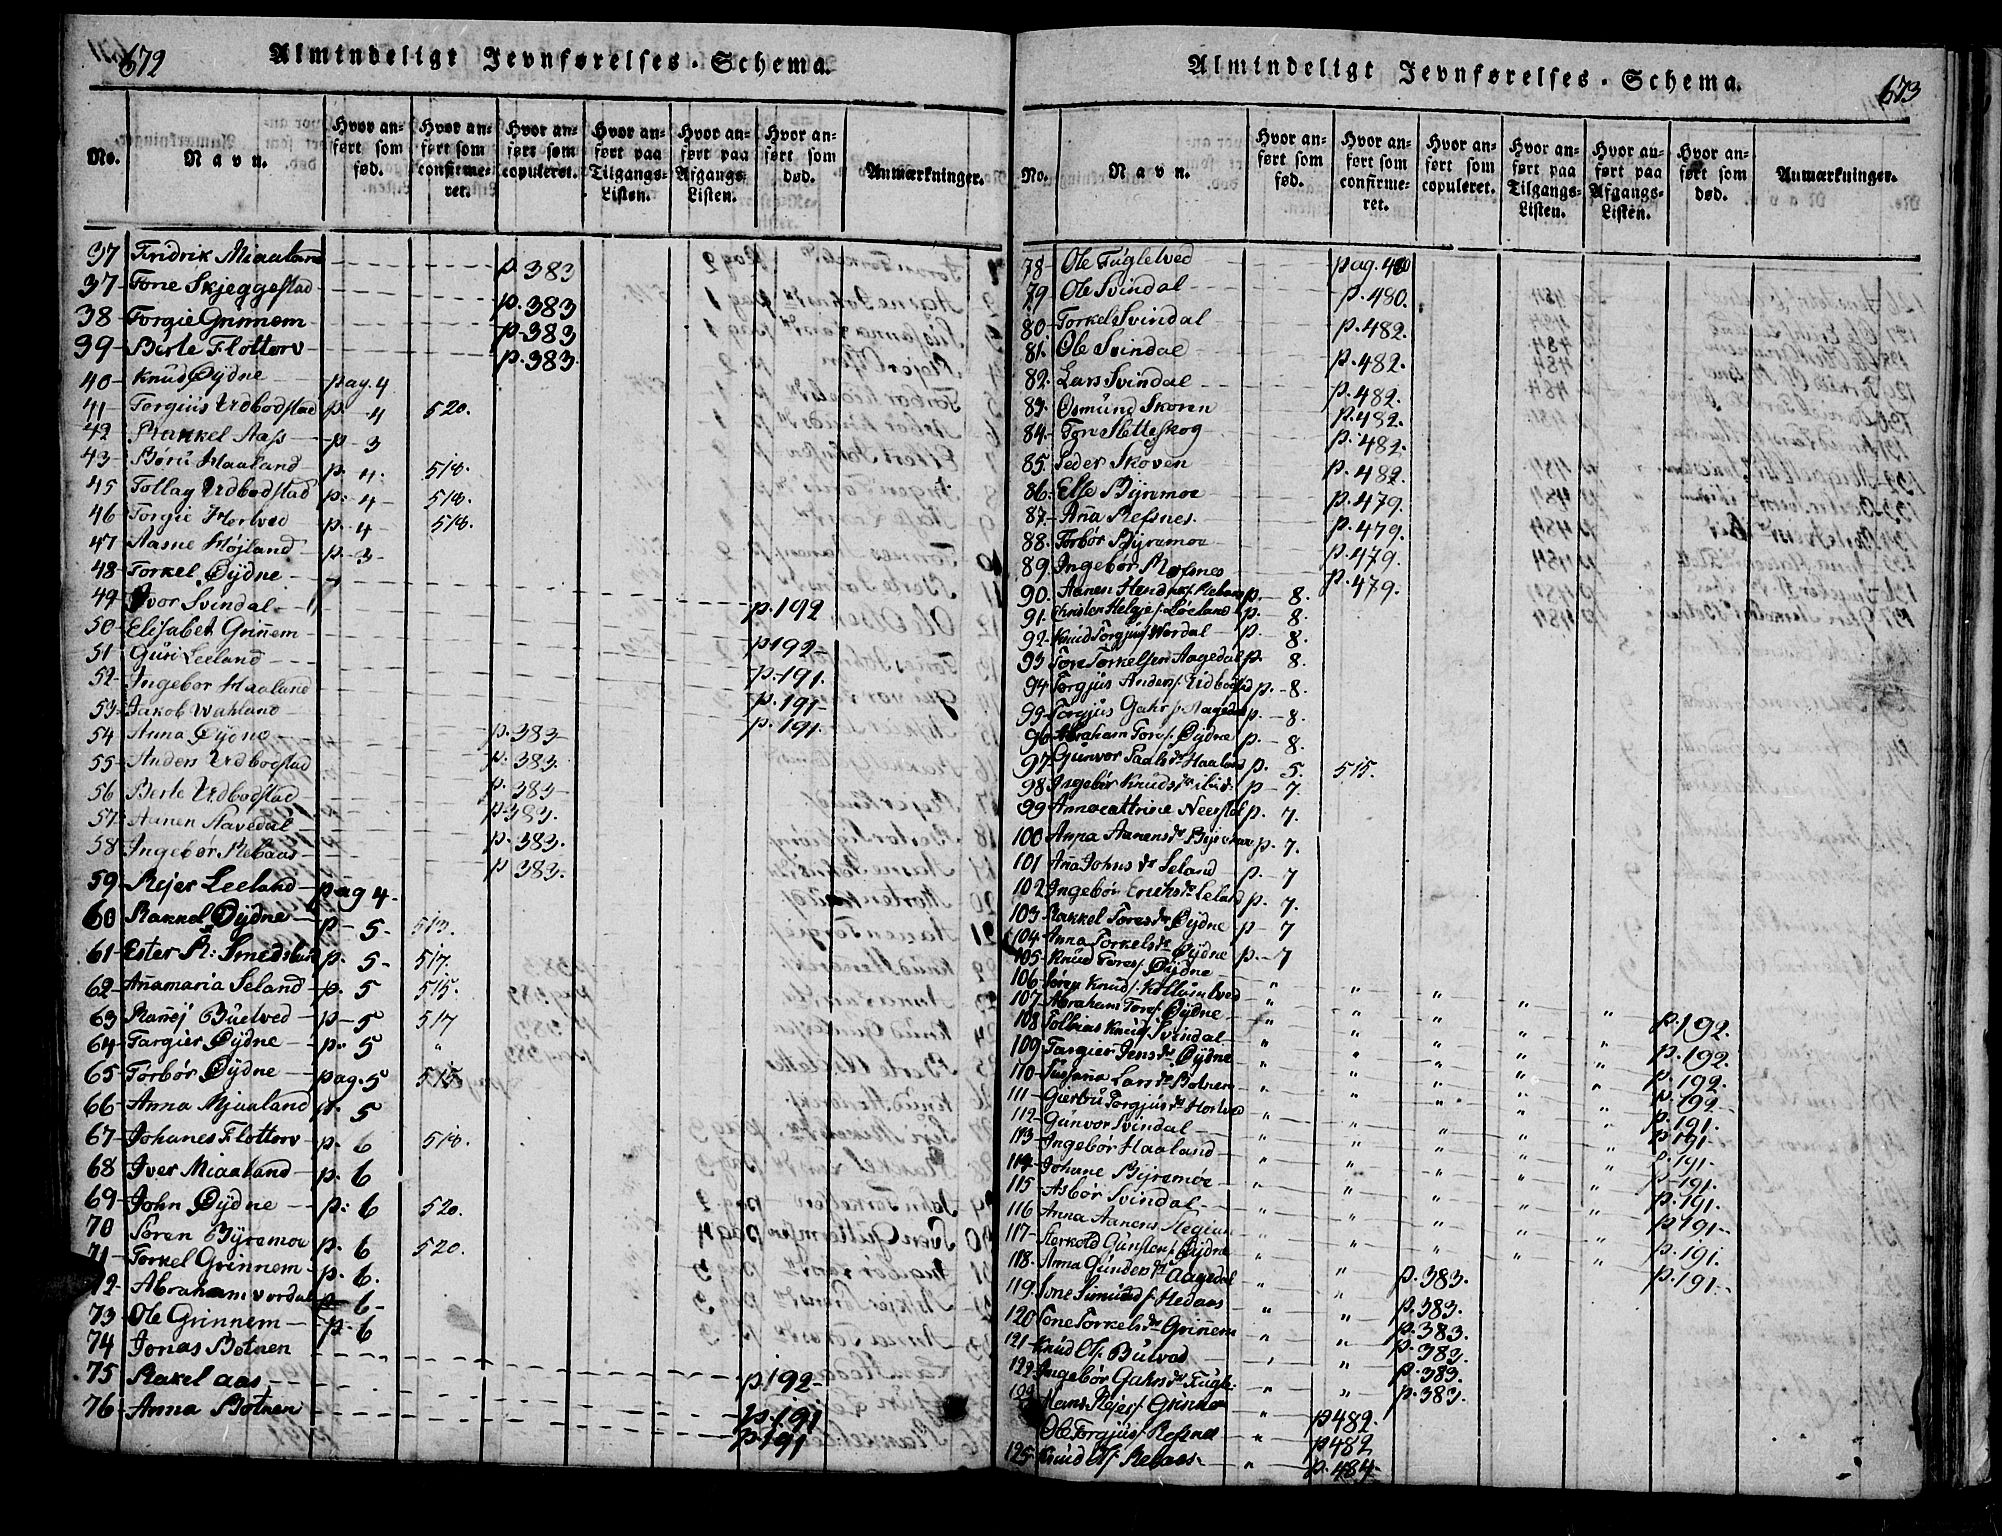 672
Almindeligt Jevnførelses-Schema.
No.
Navn.
Hvor anført som fød.
Hvor anført som confirmeret.
Hvor anført som copuleret.
Hvor anført paa Tilgangs-Listen.
Hvor anført paa Afgangs-Listen.
Hvor anført som død.
Anmærkninger.
37 Fridrik Miaaland p. 383
37 Tone Skjeggestad p. 383
38 Torgie Grinnem p. 383
39 Berte Flottorv p. 383
40 Knud Øydne pag. 4
41 Torgius Udbodstad p. 4 520.
42 Rakkel Aas p. 3
43 Børu Haaland p. 4. 518.
45 Tollag Udbodstad p. 4 518.
46 Torgie Hortved p. 4 518.
47 Aasne Højland p. 3
48 Torkel Øydne
49 Ivor Svindal p. 192
50 Elisabet Grinnem p. 192
51 Guri Leeland p. 191.
52 Ingebor Haaland p. 191
53 Jakob Wahland p. 191.
54 Anna Øydne p. 383
55 Anders Udbodstad p. 383.
56 Berte Udbodstad p. 383
57 Aanen Aavedal p. 383.
58 Ingebor Rebaas p. 383.
59 Rejer Leeland pag 4
60 Rakkel Øydne p. 5 513.
61 Ester R: p. 5 517.
62 Anamaria Seland p. 5 515.
63 Rannej Buelved p. 5 517
64 Targier Øydne p. 5 "
65 Torbør Øydne pag. 5 515
66 Anna Mjaaland p. 5
67 Johanes Flottorv p. 6 518.
68 Iver Miaaland p. 6
69 John Øydne p: 6 520.
70 Søren Byremoe p. 6 520.
71 Torkel Grinnem p. 6.
72 Abraham Vordal p. 6
73 Ole Grinnem p. 6
74 Jonas Botnen p. 192
75 Rakel Aas p. 191
76 Anna Botnen p. 191
673
Almindeligt Jevnførelses-Schema.
No.
Navn.
Hvor anført som fød.
Hvor anført som confirmeret.
Hvor anført som copuleret.
Hvor anført paa Tilgangs-Listen.
Hvor anført paa Afgangs-Listen.
Hvor anført som død.
Anmærkninger.
78 Ole Fuglelved pag. 480
79 Ole Svindal p. 480.
80 Torkel Svindal p. 482.
81. Ole Svindal p. 482.
82. Lars Svindal p. 482.
83. Osmund Skoven p. 482.
84. Tor Sletteskog p. 482.
85. Peder Skoven p. 482.
86. Else Byremoe p. 479.
87 Ana Refsnes p. 479.
88. Torbør Byremoe p. 479.
89 Ingebør Refsnes p. 479.
90. Aanen p. 8.
91. Christen Helges. Løeland p. 8.
92. Knud Torgjus. Vordal p. 8.
93 Tore Torkelsen Aagedal p. 8.
94 Torgjus Anders. Udbodstad p. 8.
95 Torgjus Gahr s. Aagedal p. 8.
96 Abraham Tores. Øydne p. 8.
97 Gunvor Paals dr. Haaland p. 5. 515.
98 Ingebør Knuds dr. p. 7.
99 Annacattrine p. 7.
100 Anna Aanens dr. p. 7.
101 Ana Johns dr. Seland p. 7
102 Ingebør Erichs dr. Leland p. 7.
103 Rakkel Tores dr. Øydne p. 7
104 Anna Torkels dr. Øydne p. 7
105 Knud Tores. Øydne " p. 192.
106 Søren Knud s. " p. 192.
107 Abraham Tores. Øydne " p. 192.
108 Tolbias Knud s. Svindal " p. 192
109 Targier Jens dr. Øydne " p. 191.
110 Susana Lars dr. Botnen " p. 191
111 Giertru Torgjus dr. Hortved " p. 191.
112 Gunvor Svindal " p. 191.
113 Ingebør Haaland " p. 191.
114 Johane Byremoe " p. 191
115 Asbør Svindal " p. 191.
116 Anna Aanens " p. 191.
117 Sterkold Gunstens. Øydne " p. 383.
118. Anna Gunders dr. Aagedal " p. 383.
119. Tone Simund s. Hedaas " p. 383.
120 Tone Torkels dr. Grinnem " p. 383.
121 Knud Ols. Bulvod " p. 383.
122 Ingebør Gahrs dr. Fugle: " p. 383.
Hans Rejers. Grinnem " p. 482.
Ole Torgjus s. Refsnes " p. 482
125 Knud Ols. Rebaas " p. 484